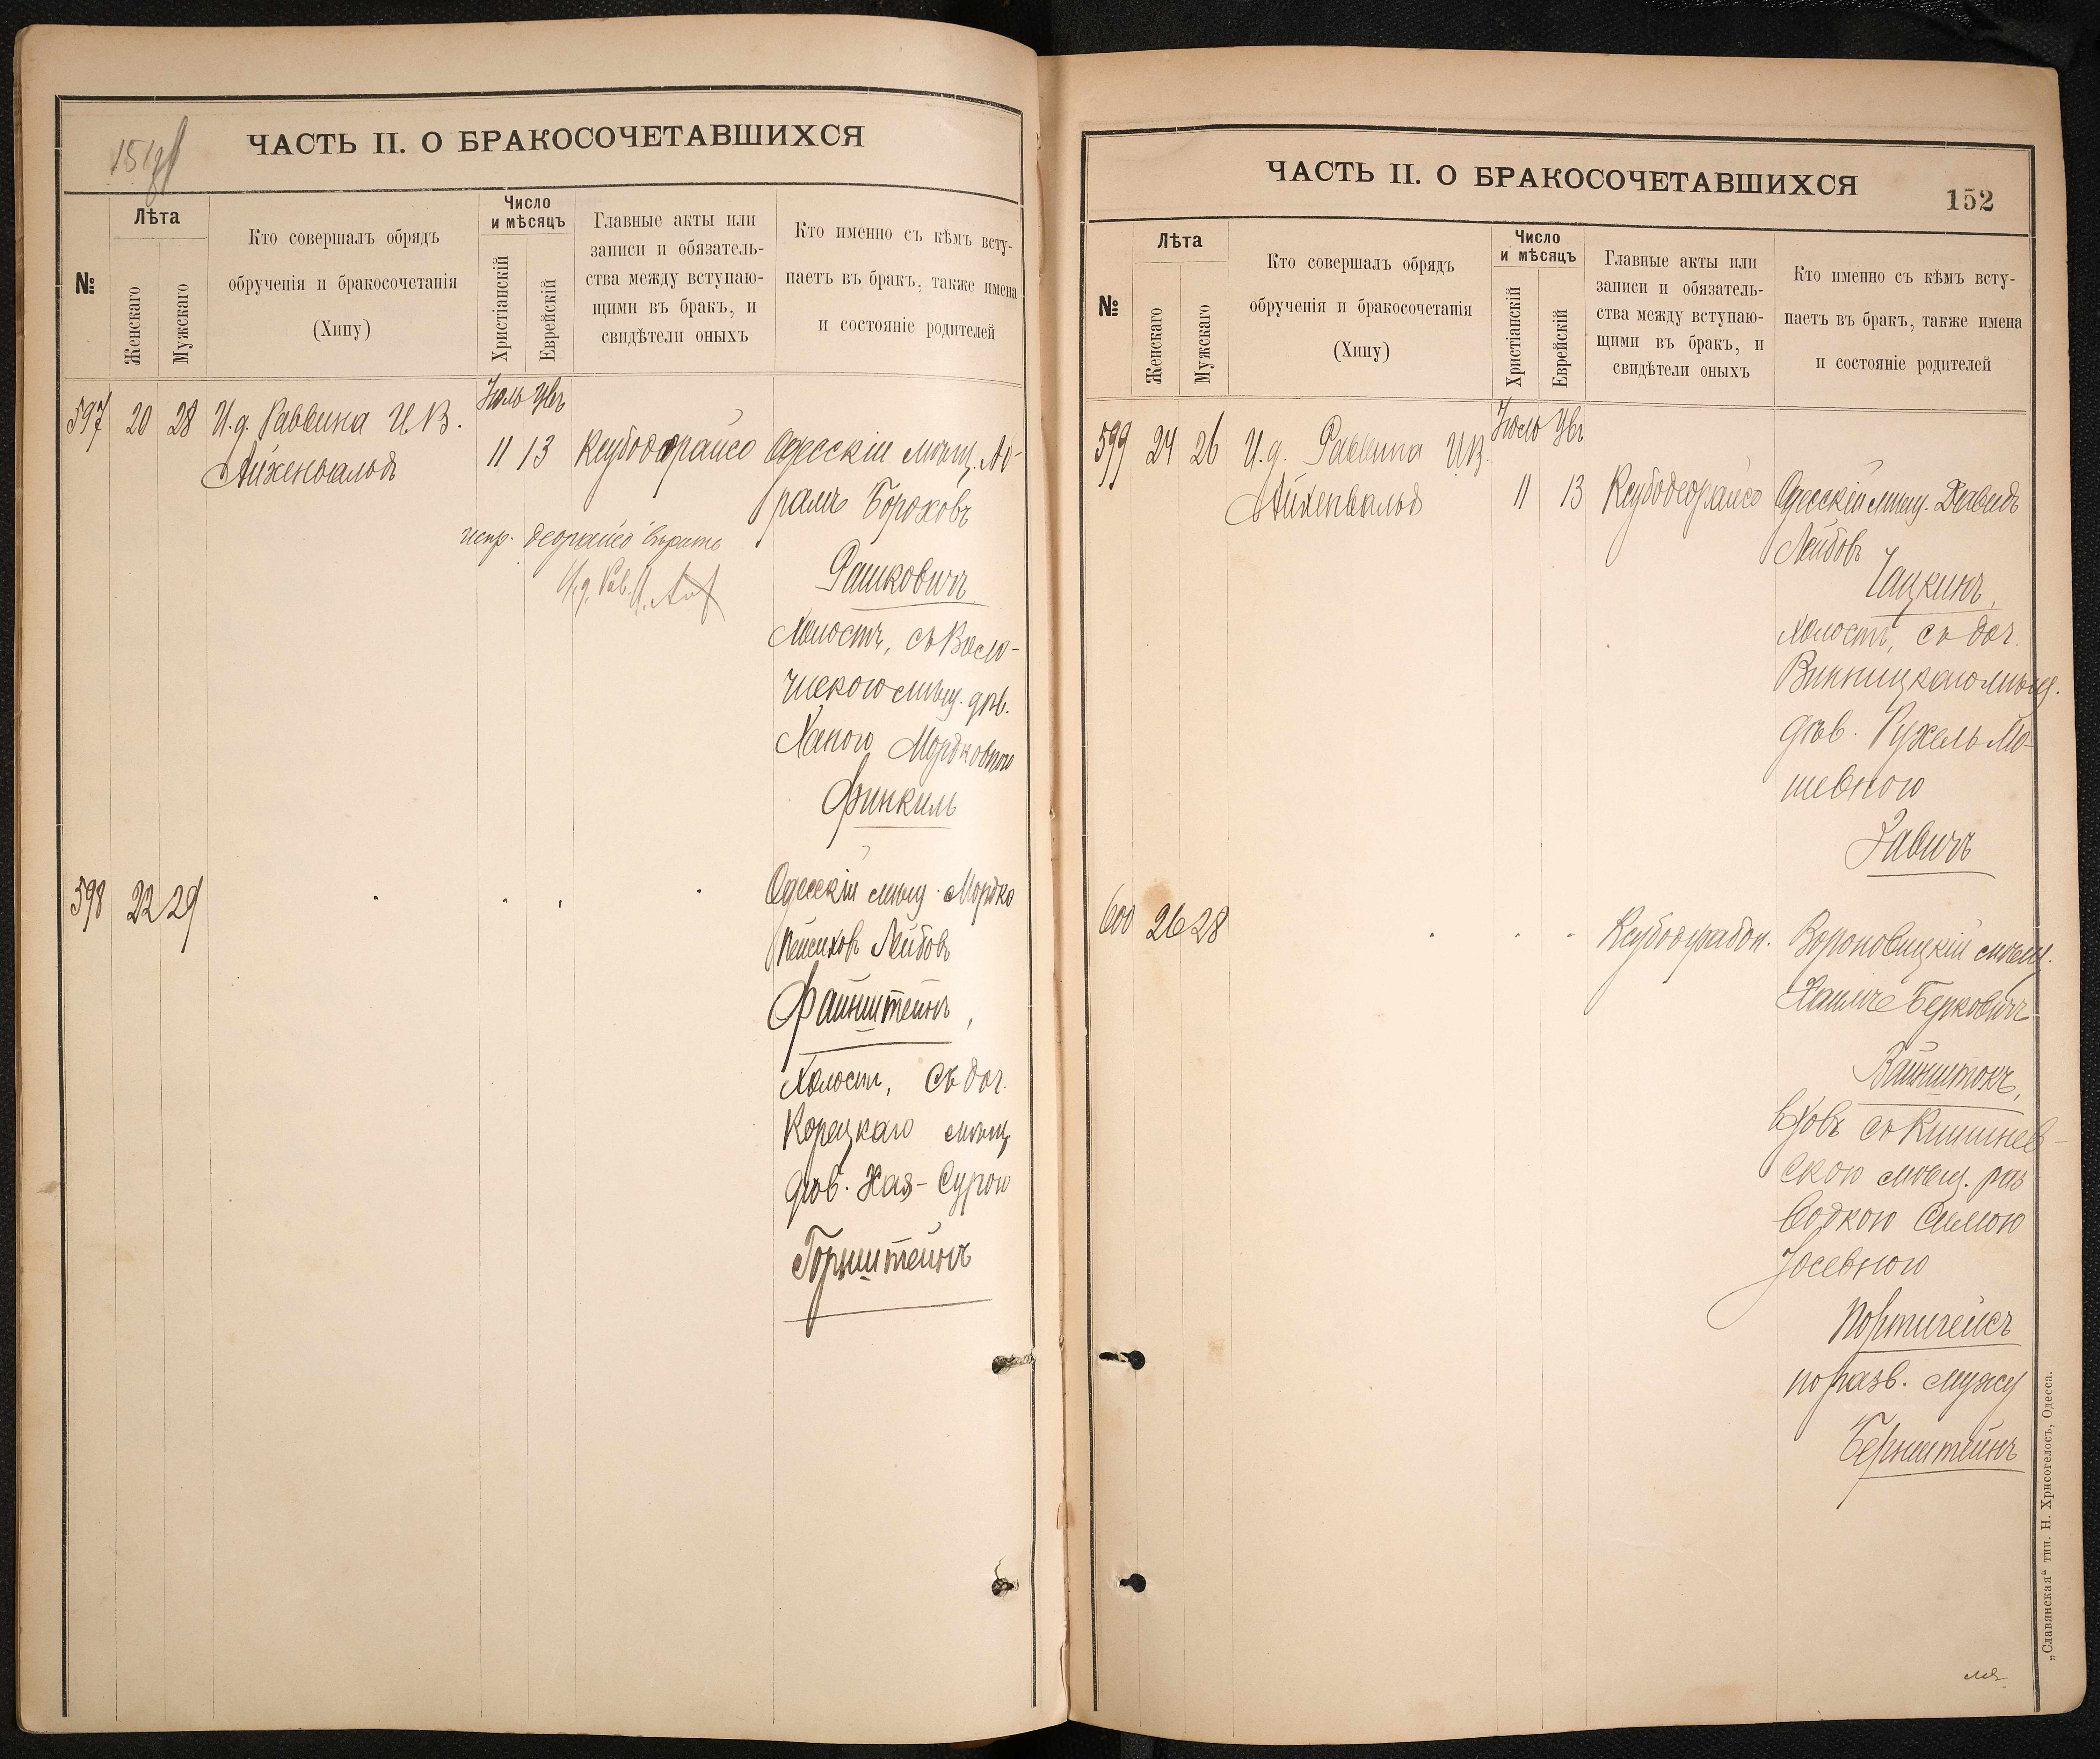 ЧАСТЬ II. О БРАКОСОЧЕТАВШИХСЯ
№
Лѣта
Женскаго
Мужскаго
Кто совершалъ обрядъ
обрученія и бракосочетанія
(Хипу)
Число
и мѣсяцъ
Христіанскій
Еврейскій
Главные акты или
записи и обязатель-
ства между вступаю-
щими въ бракъ, и
свидѣтели оныхъ
Кто именно съ кѣмъ всту-
паетъ въ бракъ, также имена
и состояніе родителей
597 20 28 И.д. Раввина И.В.
Айхенвальдъ
Іюль Увъ
11 13
Ксубодорайсо
испр. деорайсо вѣрить
И.д. Рав.
Одесскій мѣщ. Аб-
рамъ Бороховъ
Рашковичъ
Холостъ, съ Воло-
чискою мѣщ. дѣв.
Ханою Мордковною
Финкиль
598 22 29
Одесскій мѣщ. Мордко
Пейсиховъ Лейбовъ
Файнштейнъ,
Холост, съ доч.
Корецкаго мѣщ
дѣв. Хая-Сурою
Горнштейнъ
ЧАСТЬ II. О БРАКОСОЧЕТАВШИХСЯ
152
№
Лѣта
Женскаго
Мужскаго
Кто совершалъ обрядъ
обрученія и бракосочетанія
(Хипу)
Число
и мѣсяцъ
Христіанскій
Еврейскій
Главные акты или
записи и обязатель-
ства между вступаю-
щими въ бракъ, и
свидѣтели оныхъ
Кто именно съ кѣмъ всту-
паетъ въ бракъ, также имена
и состояніе родителей
599 24 26 И.д. Раввина И.В.
Айхенвальд
Іюль Увъ
11 13
Ксубодеорайсо
Одесскій мѣщ. Давидъ
Лейбовъ
Чацкинъ,
холостъ, съ доч.
Винницкаго мѣщ.
дѣв. Рухель Мо-
шевною
Завичъ
600 26 28
Ксубодрабон.
Вороновицкій мѣщ.
Хаимъ Берковичъ
Вайнштокъ,
вдовъ съ Кишинев-
скою мѣщ. раз
водкою Симою
Іосевною
Портигейсъ
по разв. мужу
Бернштейнъ
„Славянская“ тип. Н. Хрисогелосъ, Одесса.